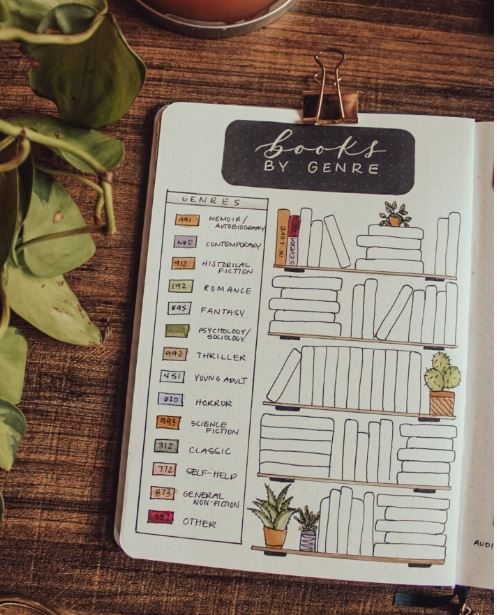 books
BY GENRE
GENRES
991 MEMOIR/
AUTOBIOGRAPHY
N60 CONTEMPORARY
912 HISTORICAL
FICTION
192 ROMANCE
N95 FANTASY
PSYCHOLOGY/
SOCIOLOGY
992 THRILLER
451 YOUNG ADULT
620 HORROR
993 SCIENCE
FICTION
312 CLASSIC
772 SELF-HELP
873 GENERAL
NON-FICTION
OTHER
IN LOVE
AUDI